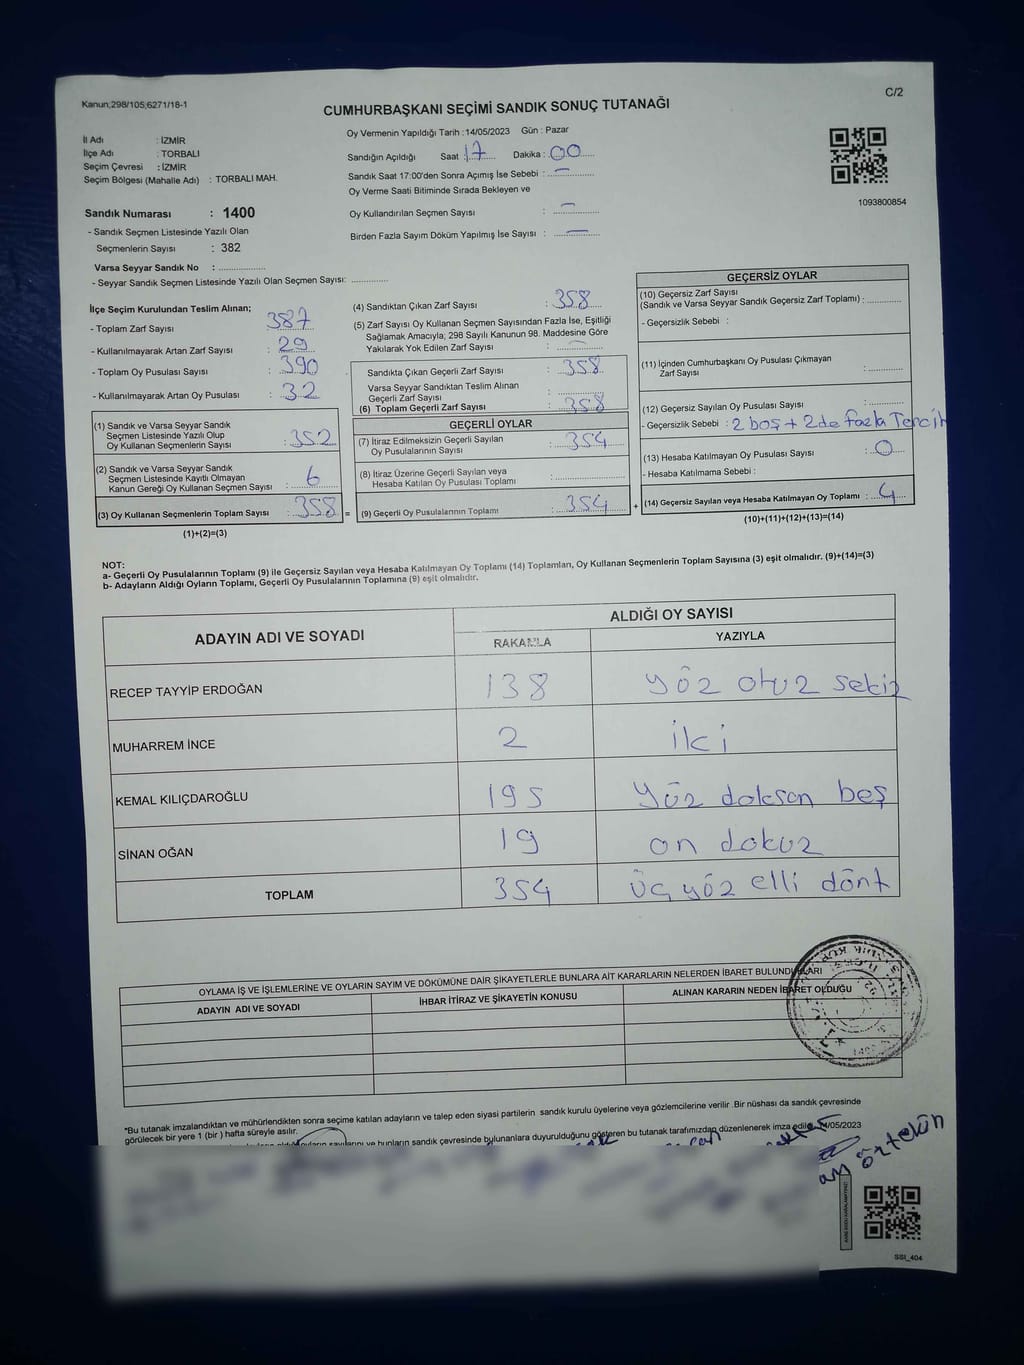 Kanun;298/105;6271/18-1
C/2
CUMHURBAŞKANI SEÇİMİ SANDIK SONUÇ TUTANAĞI
İl Adı : İZMİR
İlçe Adı : TORBALI
Seçim Çevresi : İZMİR
Seçim Bölgesi (Mahalle Adı) : TORBALI MAH.
Oy Vermenin Yapıldığı Tarih :14/05/2023 Gün : Pazar
Sandığın Açıldığı Saat : 17 Dakika : 00
Sandık Saat 17:00'den Sonra Açımış İse Sebebi : -
Oy Verme Saati Bitiminde Sırada Bekleyen ve
Oy Kullandırılan Seçmen Sayısı : -
Birden Fazla Sayım Döküm Yapılmış İse Sayısı : -
1093800854
Sandık Numarası : 1400
- Sandık Seçmen Listesinde Yazılı Olan
Seçmenlerin Sayısı : 382
Varsa Seyyar Sandık No : ..................
- Seyyar Sandık Seçmen Listesinde Yazılı Olan Seçmen Sayısı: ............
İlçe Seçim Kurulundan Teslim Alınan;
- Toplam Zarf Sayısı : 387
- Kullanılmayarak Artan Zarf Sayısı : 29
- Toplam Oy Pusulası Sayısı : 390
- Kullanılmayarak Artan Oy Pusulası : 32
(1) Sandık ve Varsa Seyyar Sandık
Seçmen Listesinde Yazılı Olup
Oy Kullanan Seçmenlerin Sayısı : 352
(2) Sandık ve Varsa Seyyar Sandık
Seçmen Listesinde Kayıtlı Olmayan
Kanun Gereği Oy Kullanan Seçmen Sayısı : 6
(3) Oy Kullanan Seçmenlerin Toplam Sayısı : 358 =
(1)+(2)=(3)
(4) Sandıktan Çıkan Zarf Sayısı : 358
(5) Zarf Sayısı Oy Kullanan Seçmen Sayısından Fazla İse, Eşitliği
Sağlamak Amacıyla; 298 Sayılı Kanunun 98. Maddesine Göre
Yakılarak Yok Edilen Zarf Sayısı : -
Sandıkta Çıkan Geçerli Zarf Sayısı : 358
Varsa Seyyar Sandıktan Teslim Alınan
Geçerli Zarf Sayısı : ............
(6) Toplam Geçerli Zarf Sayısı : 358
GEÇERLİ OYLAR
(7) İtiraz Edilmeksizin Geçerli Sayılan
Oy Pusulalarının Sayısı : 354
(8) İtiraz Üzerine Geçerli Sayılan veya
Hesaba Katılan Oy Pusulası Toplamı : ............
(9) Geçerli Oy Pusulalarının Toplamı : 354 +
GEÇERSİZ OYLAR
(10) Geçersiz Zarf Sayısı
(Sandık ve Varsa Seyyar Sandık Geçersiz Zarf Toplamı) : .........
- Geçersizlik Sebebi :
(11) İçinden Cumhurbaşkanı Oy Pusulası Çıkmayan
Zarf Sayısı : .........
(12) Geçersiz Sayılan Oy Pusulası Sayısı : .........
- Geçersizlik Sebebi : 2 boş + 2 de fazla Tercih
(13) Hesaba Katılmayan Oy Pusulası Sayısı : 0
- Hesaba Katılmama Sebebi :
(14) Geçersiz Sayılan veya Hesaba Katılmayan Oy Toplamı : 4
(10)+(11)+(12)+(13)=(14)
NOT:
a- Geçerli Oy Pusulalarının Toplamı (9) ile Geçersiz Sayılan veya Hesaba Katılmayan Oy Toplamı (14) Toplamları, Oy Kullanan Seçmenlerin Toplam Sayısına (3) eşit olmalıdır. (9)+(14)=(3)
b- Adayların Aldığı Oyların Toplamı, Geçerli Oy Pusulalarının Toplamına (9) eşit olmalıdır.
ADAYIN ADI VE SOYADI ALDIĞI OY SAYISI
RAKAMLA YAZIYLA
RECEP TAYYİP ERDOĞAN 138 yöz otuz sekiz
MUHARREM İNCE 2 iki
KEMAL KILIÇDAROĞLU 195 yöz doksan beş
SİNAN OĞAN 19 on dokuz
TOPLAM 354 üç yöz elli dört
OYLAMA İŞ VE İŞLEMLERİNE VE OYLARIN SAYIM VE DÖKÜMÜNE DAİR ŞİKAYETLERLE BUNLARA AİT KARARLARIN NELERDEN İBARET BULUNDUKLARI
ADAYIN ADI VE SOYADI İHBAR İTİRAZ VE ŞİKAYETİN KONUSU ALINAN KARARIN NEDEN İBARET OLDUĞU
*Bu tutanak imzalandıktan ve mühürlendikten sonra seçime katılan adayların ve talep eden siyasi partilerin sandık kurulu üyelerine veya gözlemcilerine verilir .Bir nüshası da sandık çevresinde
görülecek bir yere 1 (bir ) hafta süreyle asılır.
sayılarını ve bunların sandık çevresinde bulunanlara duyurulduğunu gösteren bu tutanak tarafımızdan düzenlenerek imza edildi. 14/05/2023
öztekin
SSI_404